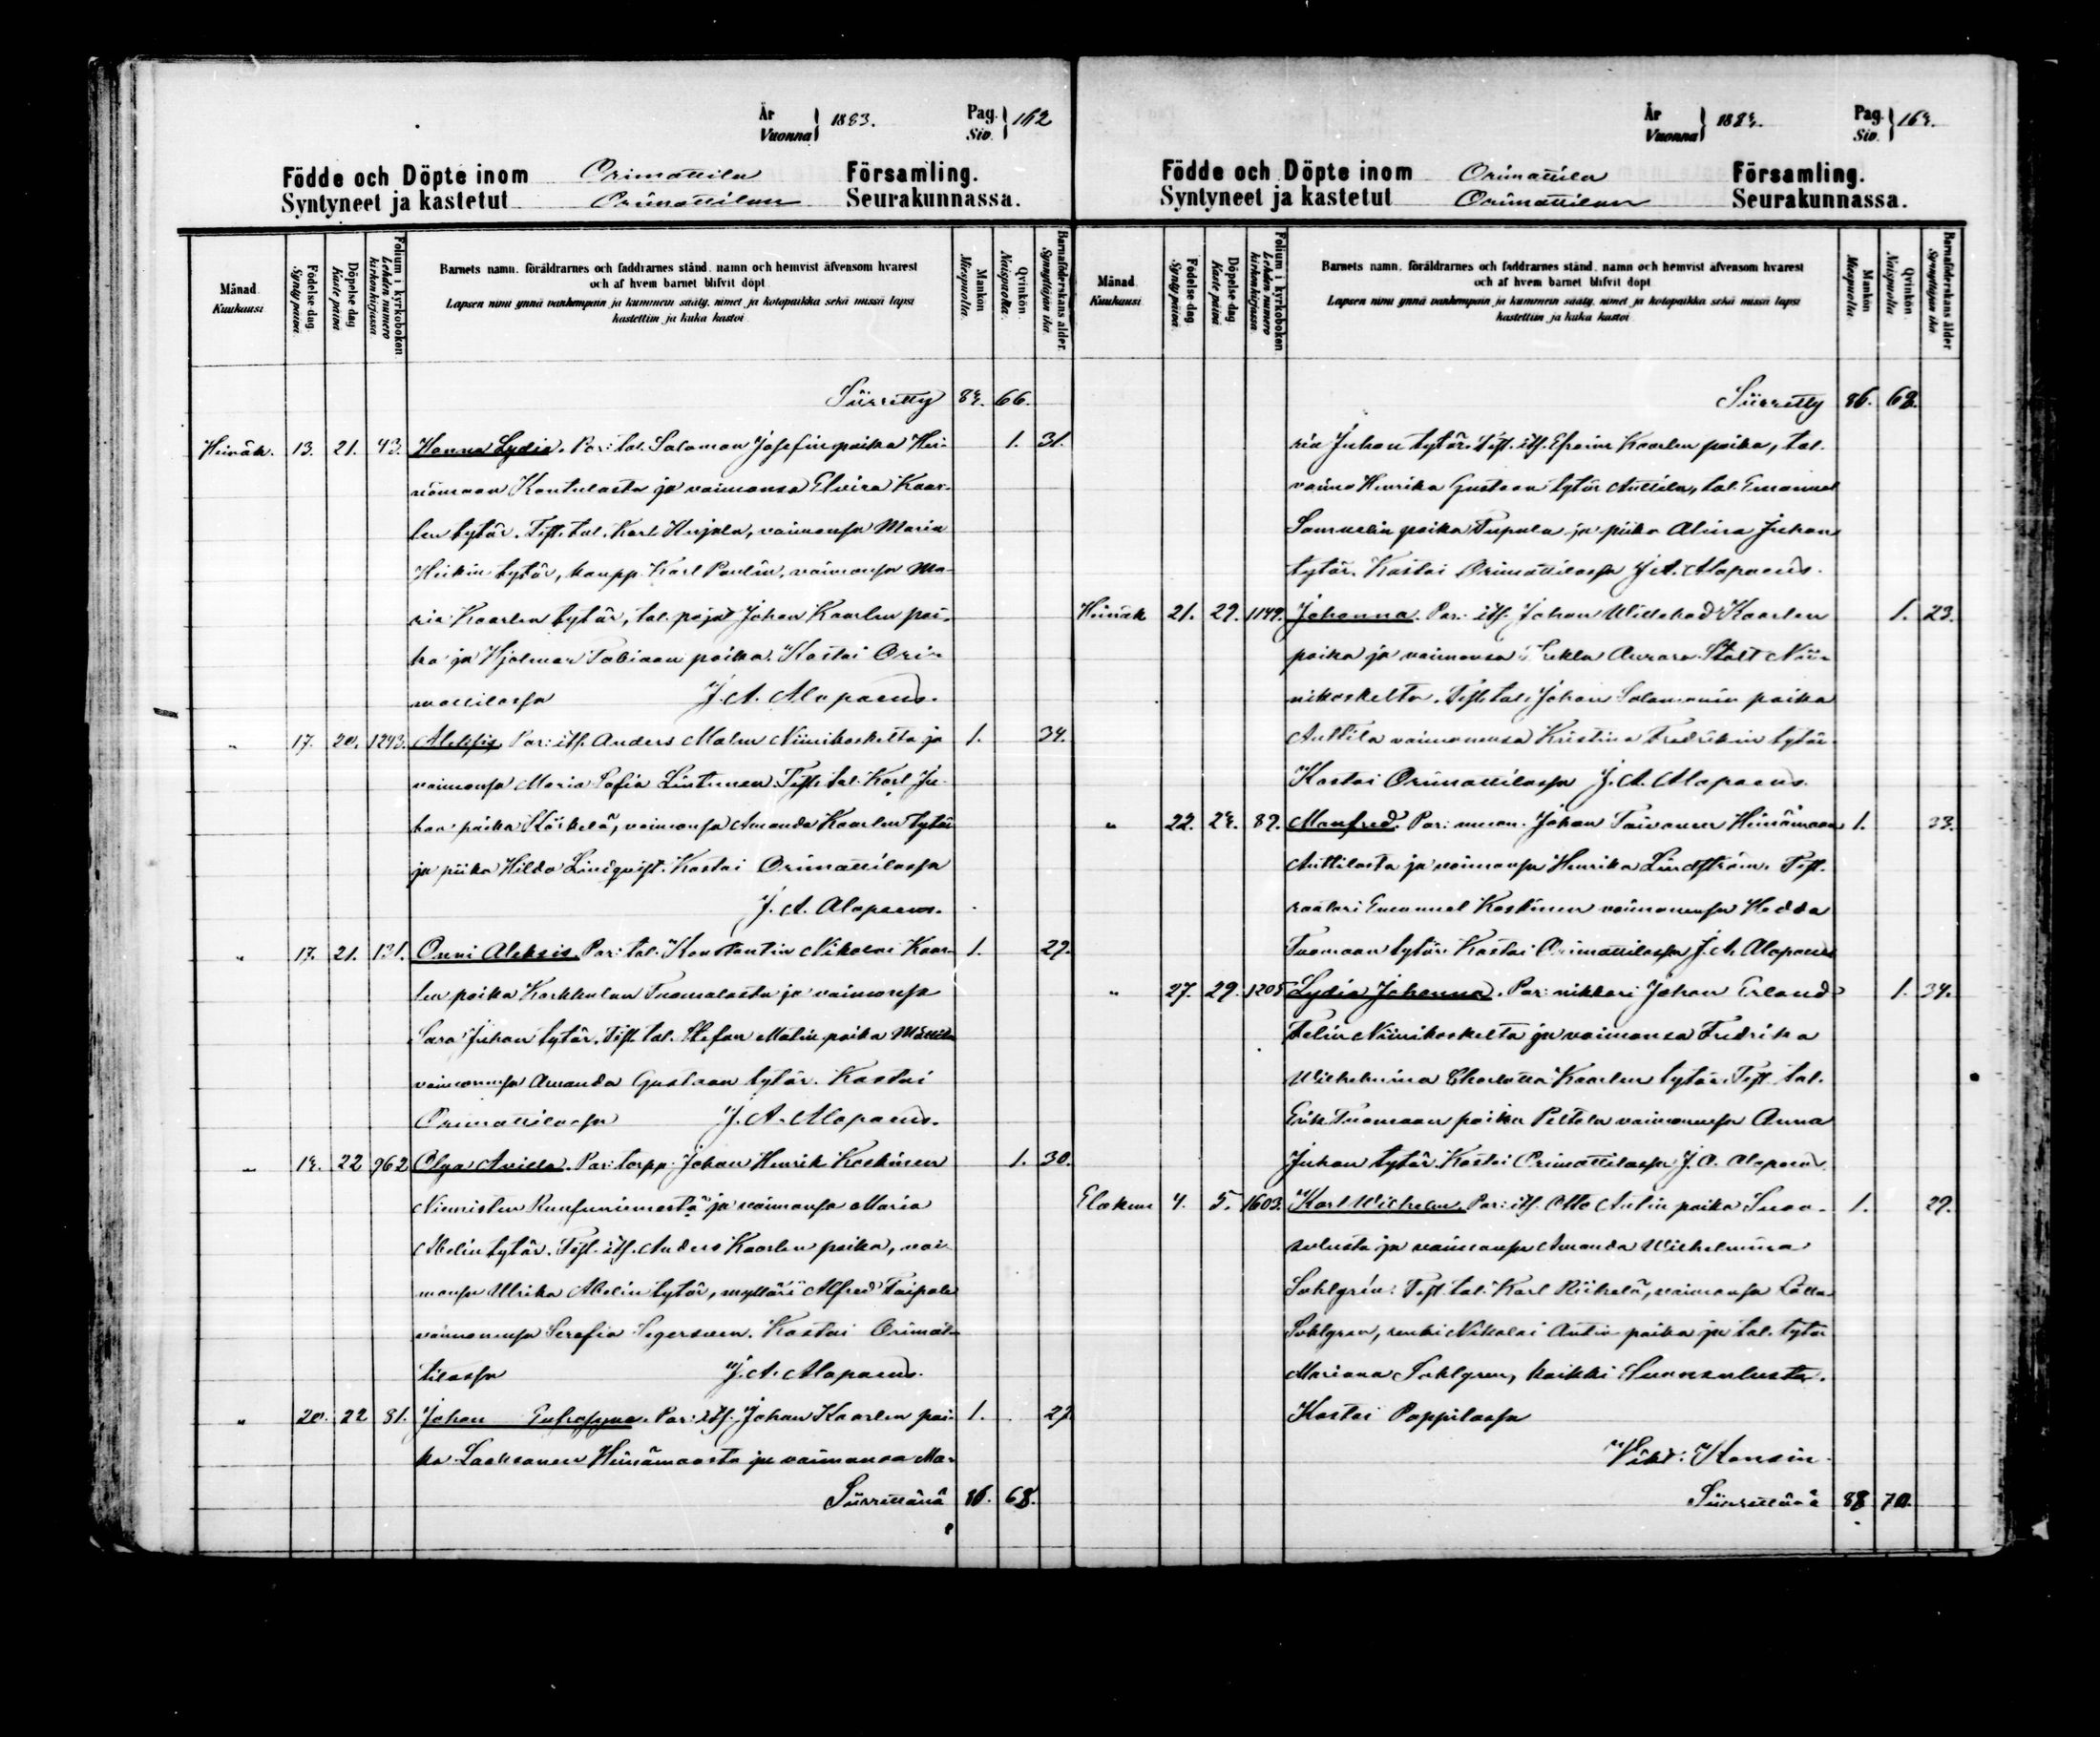 År Vuonna } 1883. Pag. Siv. } 162
Födde och Döpte inom Orimattila Församling.
Syntyneet ja kastetut Orimattilan Seurakunnassa.
Månad. Kuukausi
Födelse-dag Syntypäivä
Döpelse-dag Kaste päivä
Folium i kyrkoboken Lehden numero kirkonkirjassa
Barnets namn, föräldrarnes och faddrarnes stånd, namn och hemvist äfvensom hvarest
och af hvem barnet blifvit döpt
Lapsen nimi ynnä vanhempain ja kummein sääty, nimet ja kotopaikka sekä missä lapsi
kastettiin ja kuka kastoi
Mankön Miespuolia.
Qvinkön Naispuolia.
Barnaföderskans ålder. Synnyttäjän ikä.
Siirretty 84. 66.
Heinäk. 13. 21. 43. Hanna Lydia. Par: tal. Salomon Josefin poika Hei- 1. 31.
nämaan Kontulasta ja vaimonsa Elvira Kaar-
len tytär. Test. tal. Karl Hirjala, vaimonsa Maria
Heikin tytär, kaupp. Karl Paulin, vaimonsa Ma-
ria Kaarlen tytär, tal. pojat Johan Kaarlen poi-
ka ja Hjalmar Fabiaan poika. Kastoi Ori-
mattilassa J. A. Alopaeus.
" 17. 20. 1243. Aleksis. Par: its. Anders Malm Niinikoskelta ja 1. 34.
vaimonsa Maria Sofia Lintunen. Test. tal. Karl Ju-
han poika Köskelä, vaimonsa Amanda Kaarlen tytär
ja piika Hilda Lindqvist. Kastoi Orimattilassa
J. A. Alopaeus.
" 17. 21. 131. Onni Aleksis. Par: tal. Konstantin Nikolai Kaar- 1. 27.
len poika Karkkulan Tuomalasta ja vaimonsa
Sara Juhan tytär. Test. tal. Stefan Matin poika Mattila
vaimonensa Amanda Gustaan tytär. Kastoi
Orimattilassa J. A. Alopaeus.
" 14. 22 962 Olga Avilla. Par: torpp. Johan Henrik Koskinen 1. 30.
Niemisten Ruusuniemestä ja vaimonsa Maria
Abelin tytär. Test. its. Anders Kaarlen poika, vai-
monsa Ulrika Abelin tytär, mylläri Alfred Taipale
vaimonensa Serafia Segersven. Kastoi Orimat-
tilassa J. A. Alopaeus.
" 20. 22 81. Johan Eufrosyne. Par: its. Johan Kaarlen poi- 1. 27
ka Laaksonen Heinämaasta ja vaimonsa Ma-
Siirrettävä 86. 68.
År Vuonna } 1884. Pag. Siv. } 164.
Födde och Döpte inom Orimattila Församling.
Syntyneet ja kastetut Orimattilan Seurakunnassa.
Månad. Kuukausi
Födelse-dag Syntypäivä
Döpelse-dag Kaste päivä
Folium i kyrkoboken Lehden numero kirkonkirjassa
Barnets namn, föräldrarnes och faddrarnes stånd, namn och hemvist äfvensom hvarest
och af hvem barnet blifvit döpt
Lapsen nimi ynnä vanhempain ja kummein sääty, nimet ja kotopaikka sekä missä lapsi
kastettiin ja kuka kastoi
Mankön Miespuolia
Qvinkön Naispuolia
Barnaföderskans ålder Synnyttäjän ikä
Siirretty 86. 68.
ria Juhan tytär. Test. its. Efraim Kaarlen poika, tal.
vaimo Henrika Gustaan tytär Anttila, tal. Emanuel
Samuelin poika Tupala ja piika Alina Juhan
tytär. Kastoi Orimattilassa J. A. Alopaeus.
Heinäk 21. 29. 1149. Johanna. Par: its. Johan Willehad Kaarlen 1. 23.
poika ja vaimonsa Tekla Aurora Stålt Nii-
nikoskelta. Test. tal. Johan Salomonin poika
Anttila vaimonensa Kristina Fredrikin tytär.
Kastoi Orimattilassa J. A. Alopaeus.
" 22. 24. 89. Manfred. Par: muon. Johan Toivonen Heinämaan 1. 33.
Anttilasta ja vaimonsa Henrika Lindström. Test.
raatari Emanuel Koskinen vaimonensa Hedda
Tuomaan tytär. Kastoi Orimattilassa J. A. Alopaeus
" 27. 29. 1205 Lydia Johanna. Par: nikkari Johan Erland 1. 34.
Felin Niinikoskelta ja vaimonsa Fredrika
Wilhelmina Charlotta Kaarlen tytär. Test. tal.
Erik Tuomaan poika Peltola vaimonensa Anna
Juhan tytär. Kastoi Orimattilassa J. A. Alopaeus.
Elokuu 4. 5. 1603. Karl Wilhelm. Par: its. Otto Antin poika Suon- 1. 29.
sulusta ja vaimonsa Amanda Wilhelmina
Sohlgrén. Test. tal. Karl Riikelä, vaimonsa Lotta
Sohlgren, renki Nikolai Antin poika ja tal. tytär
Mariana Sohlgren, kaikki Luonsulusta.
Kastoi Pappilassa
Vikt. Konsin.
Siirrettävä 88 70.